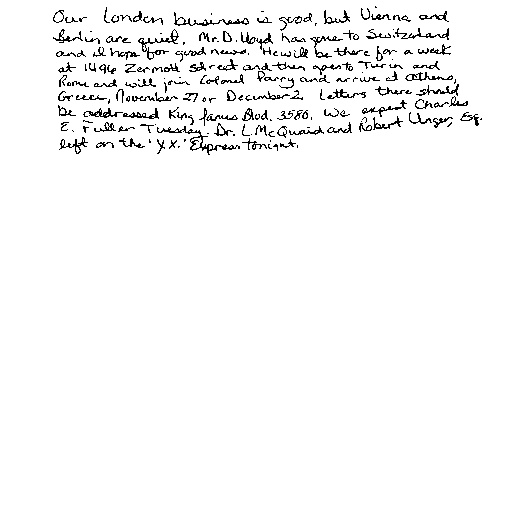 Our London business is good, but Vienna and
Berlin are quiet. Mr. D. Lloyd has gone to Switzerland
and I hope for good news. He will be there for a week
at 1496 Zermott street and then goes to Turin and
Rome and will join Colonel Parry and arrive at Athens,
Greece, November 27 or December 2. Letters there should
be addressed King James Blvd. 3580. We expect Charles
E. Fuller Tuesday. Dr. L McQuaid and Robert Unger, Esq.
left on the 'Y.X.' Express tonight.